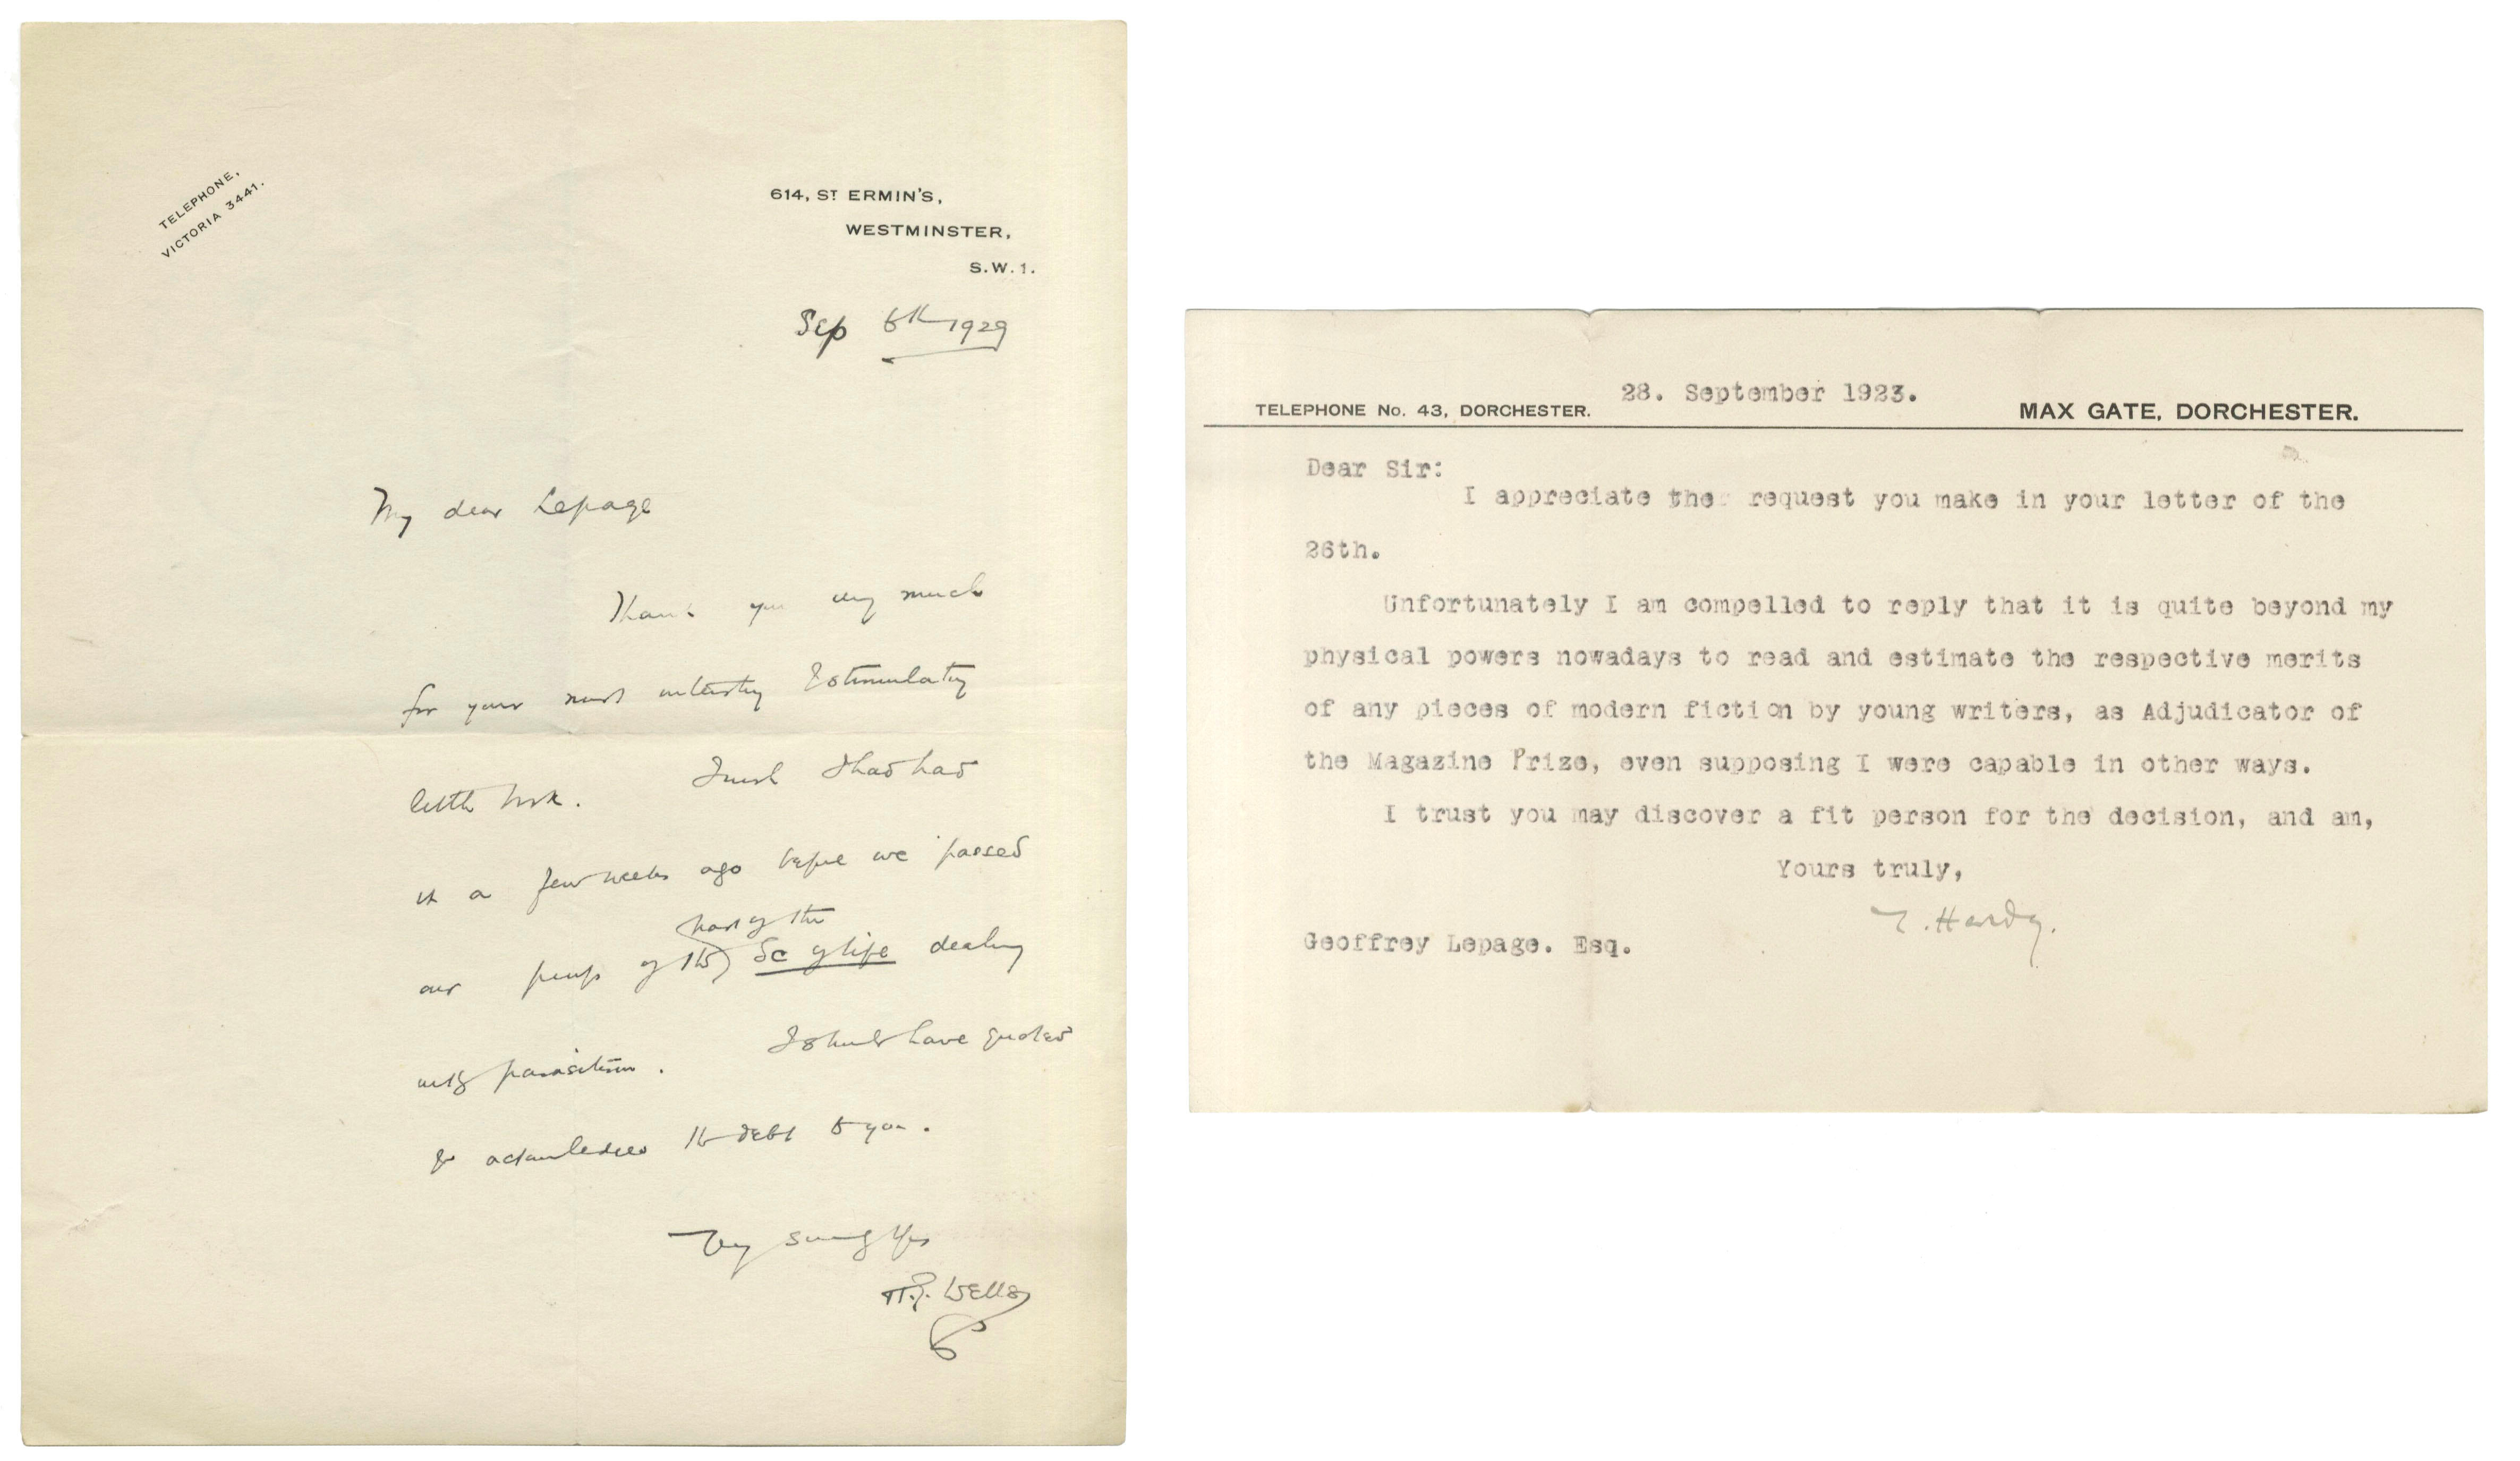 TELEPHONE,
VICTORIA 3441.
614, ST ERMIN'S,
WESTMINSTER,
S.W.1.
Sep 6th 1929
My dear Lepage
Thank you very much
for your most interesting & stimulating
little book. I wish I had had
it a few weeks ago before we passed
part of the
our proofs of the Sc of Life dealing
with parasitism. I should have quoted
& acknowledged the debt to you.
Very sincerely yrs
H.G. Wells
28. September 1923.
TELEPHONE No. 43, DORCHESTER. MAX GATE, DORCHESTER.
Dear Sir:
I appreciate the request you make in your letter of the
26th.
Unfortunately I am compelled to reply that it is quite beyond my
physical powers nowadays to read and estimate the respective merits
of any pieces of modern fiction by young writers, as Adjudicator of
the Magazine Prize, even supposing I were capable in other ways.
I trust you may discover a fit person for the decision, and am,
Yours truly,
T. Hardy.
Geoffrey Lepage. Esq.